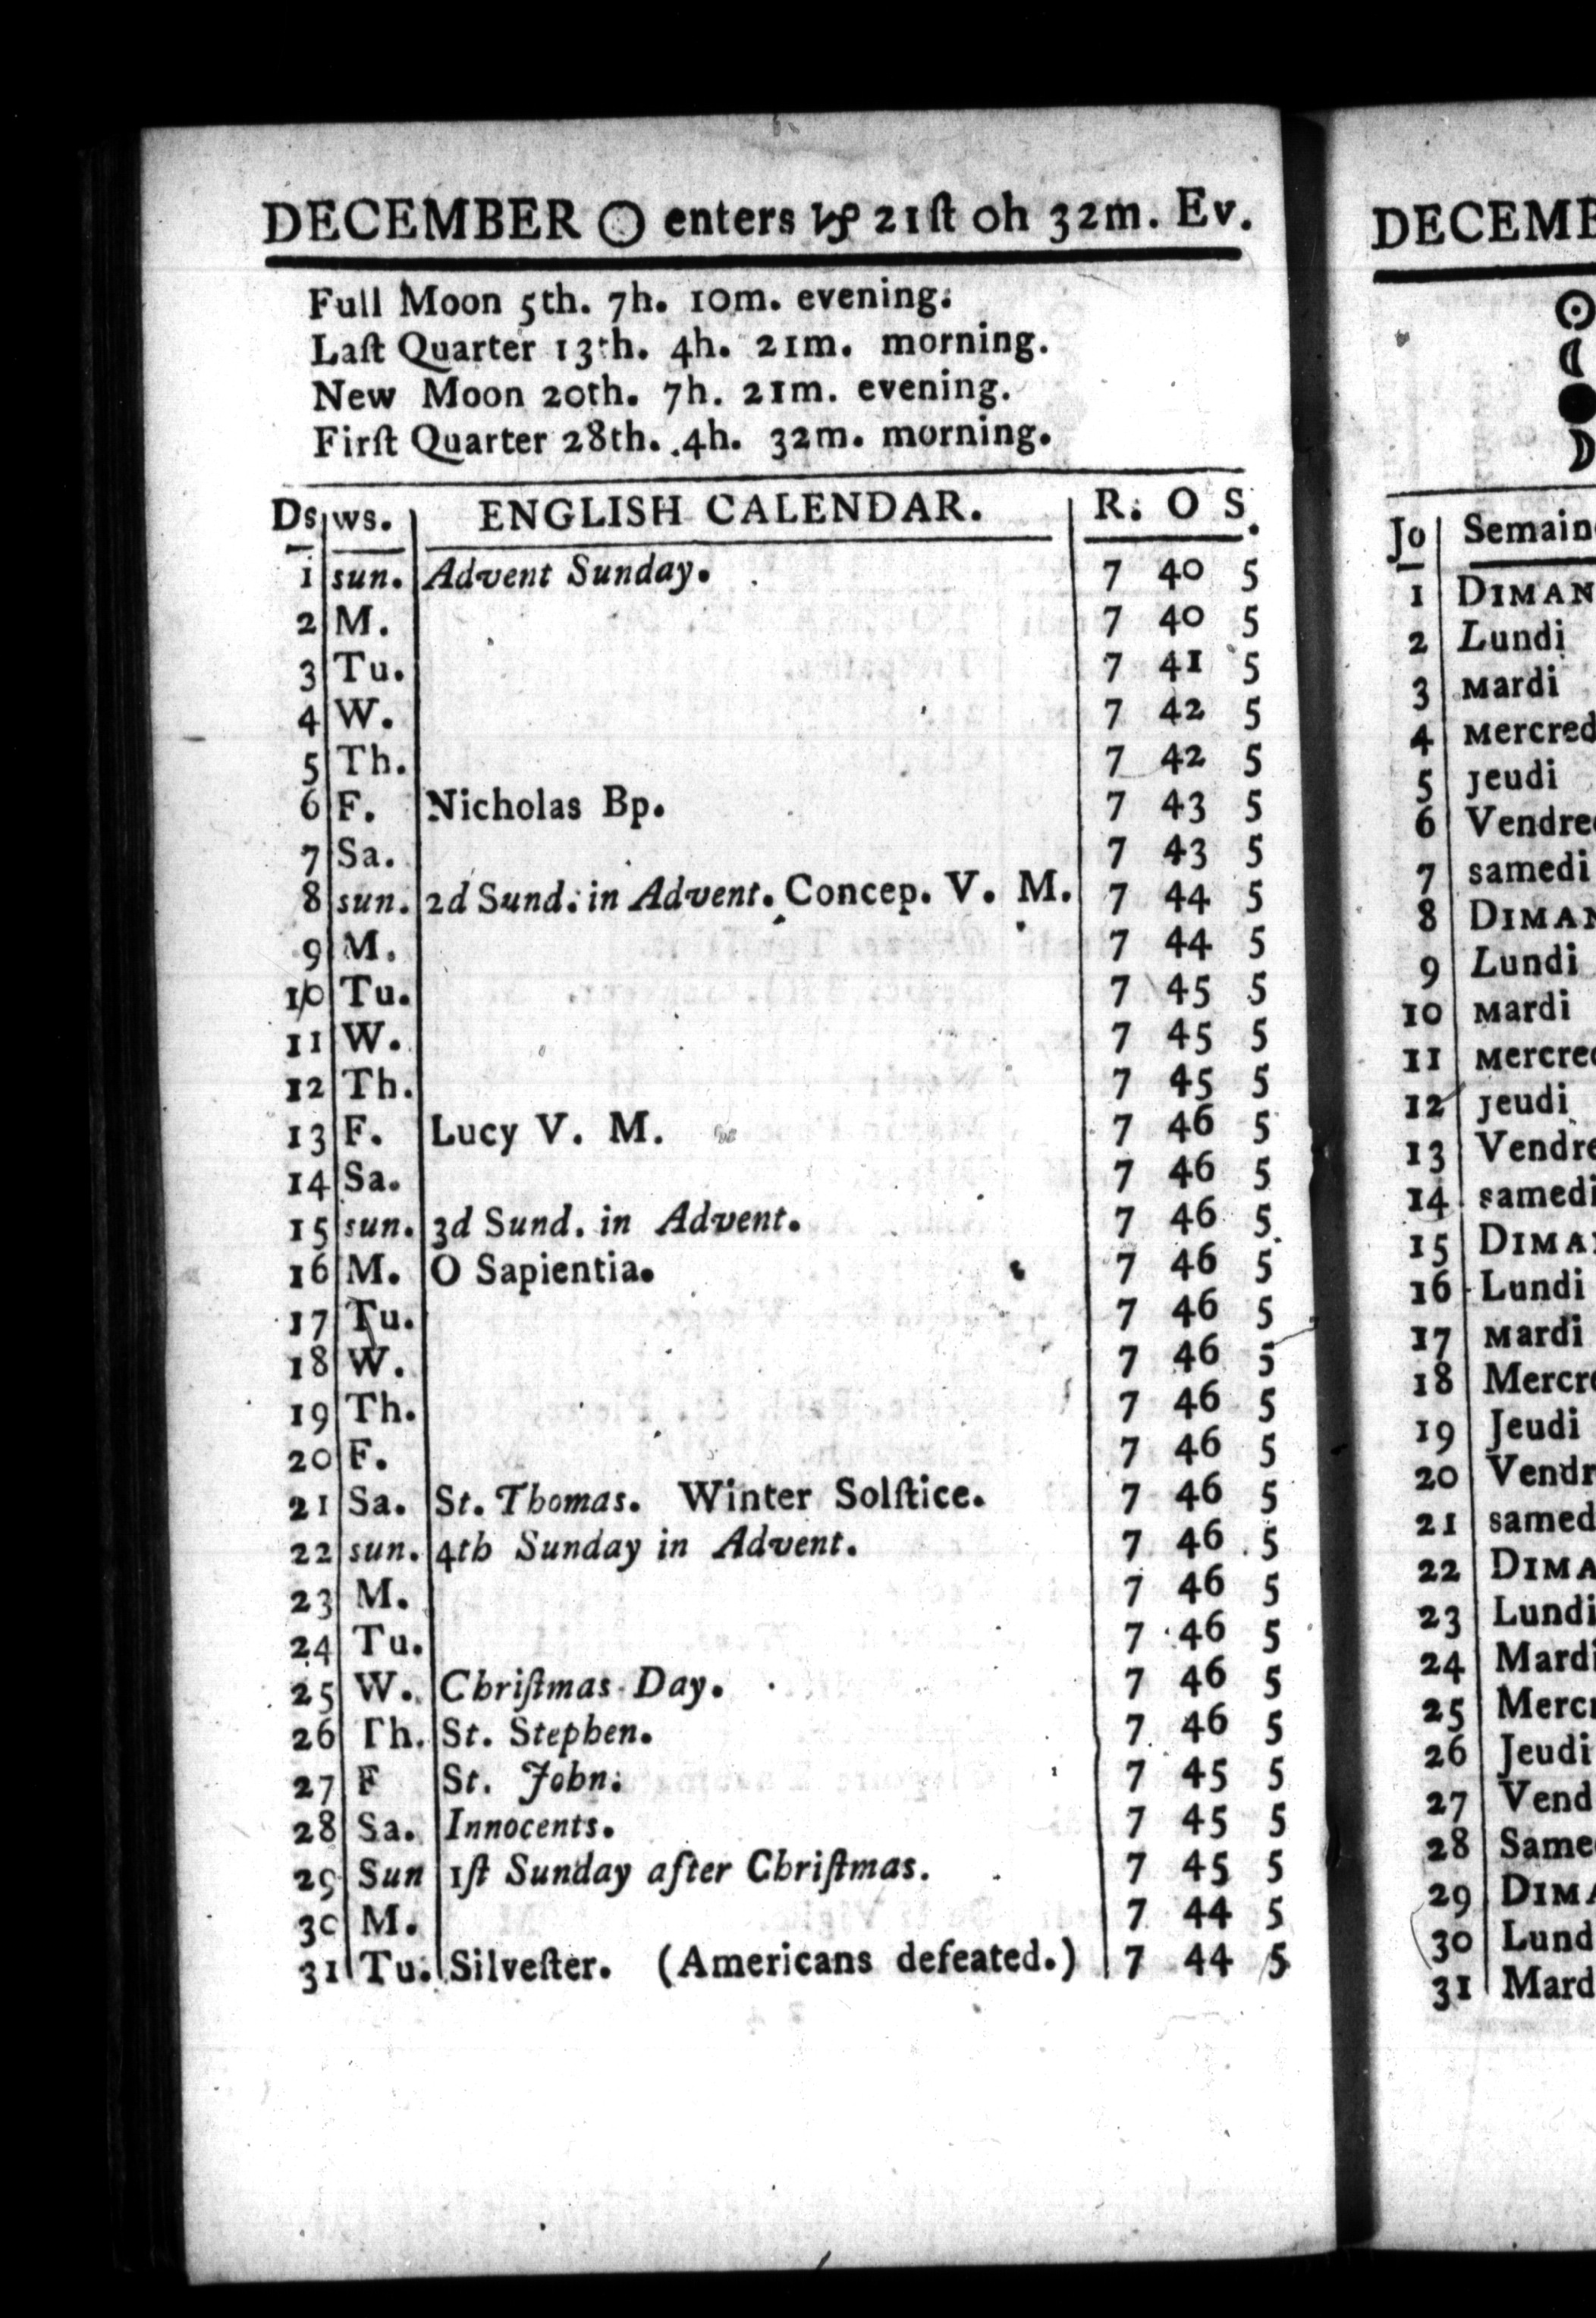 DECEMBER ☉ enters ♑ 21ſt 0h 32m. Ev.
Full Moon 5th. 7h. 10m. evening.
Laſt Quarter 13th. 4h. 21m. morning.
New Moon 20th. 7h. 21m. evening.
Firſt Quarter 28th. 4h. 32m. morning.
Ds ws. ENGLISH CALENDAR. R. O S.
1 sun. Advent Sunday. 7 40 5
2 M. 7 40 5
3 Tu. 7 41 5
4 W. 7 42 5
5 Th. 7 42 5
6 F. Nicholas Bp. 7 43 5
7 Sa. 7 43 5
8 sun. 2d Sund. in Advent. Concep. V. M. 7 44 5
9 M. 7 44 5
10 Tu. 7 45 5
11 W. 7 45 5
12 Th. 7 45 5
13 F. Lucy V. M. 7 46 5
14 Sa. 7 46 5
15 sun. 3d Sund. in Advent. 7 46 5
16 M. O Sapientia. 7 46 5
17 Tu. 7 46 5
18 W. 7 46 5
19 Th. 7 46 5
20 F. 7 46 5
21 Sa. St. Thomas. Winter Solſtice. 7 46 5
22 sun. 4th Sunday in Advent. 7 46 5
23 M. 7 46 5
24 Tu. 7 46 5
25 W. Chriſtmas Day. 7 46 5
26 Th. St. Stephen. 7 46 5
27 F St. John. 7 45 5
28 Sa. Innocents. 7 45 5
29 Sun 1ſt Sunday after Chriſtmas. 7 45 5
30 M. 7 44 5
31 Tu. Silveſter. (Americans defeated.) 7 44 5
DECEMB
Jo Semain
1 DIMAN
2 Lundi
3 Mardi
4 Mercred
5 Jeudi
6 Vendre
7 samedi
8 DIMAN
9 Lundi
10 Mardi
11 Mercre
12 Jeudi
13 Vendre
14 samedi
15 DIMA
16 Lundi
17 Mardi
18 Mercr
19 Jeudi
20 Vendr
21 samed
22 DIMA
23 Lundi
24 Mardi
25 Merc
26 Jeudi
27 Vend
28 Same
29 DIM
30 Lund
31 Mard